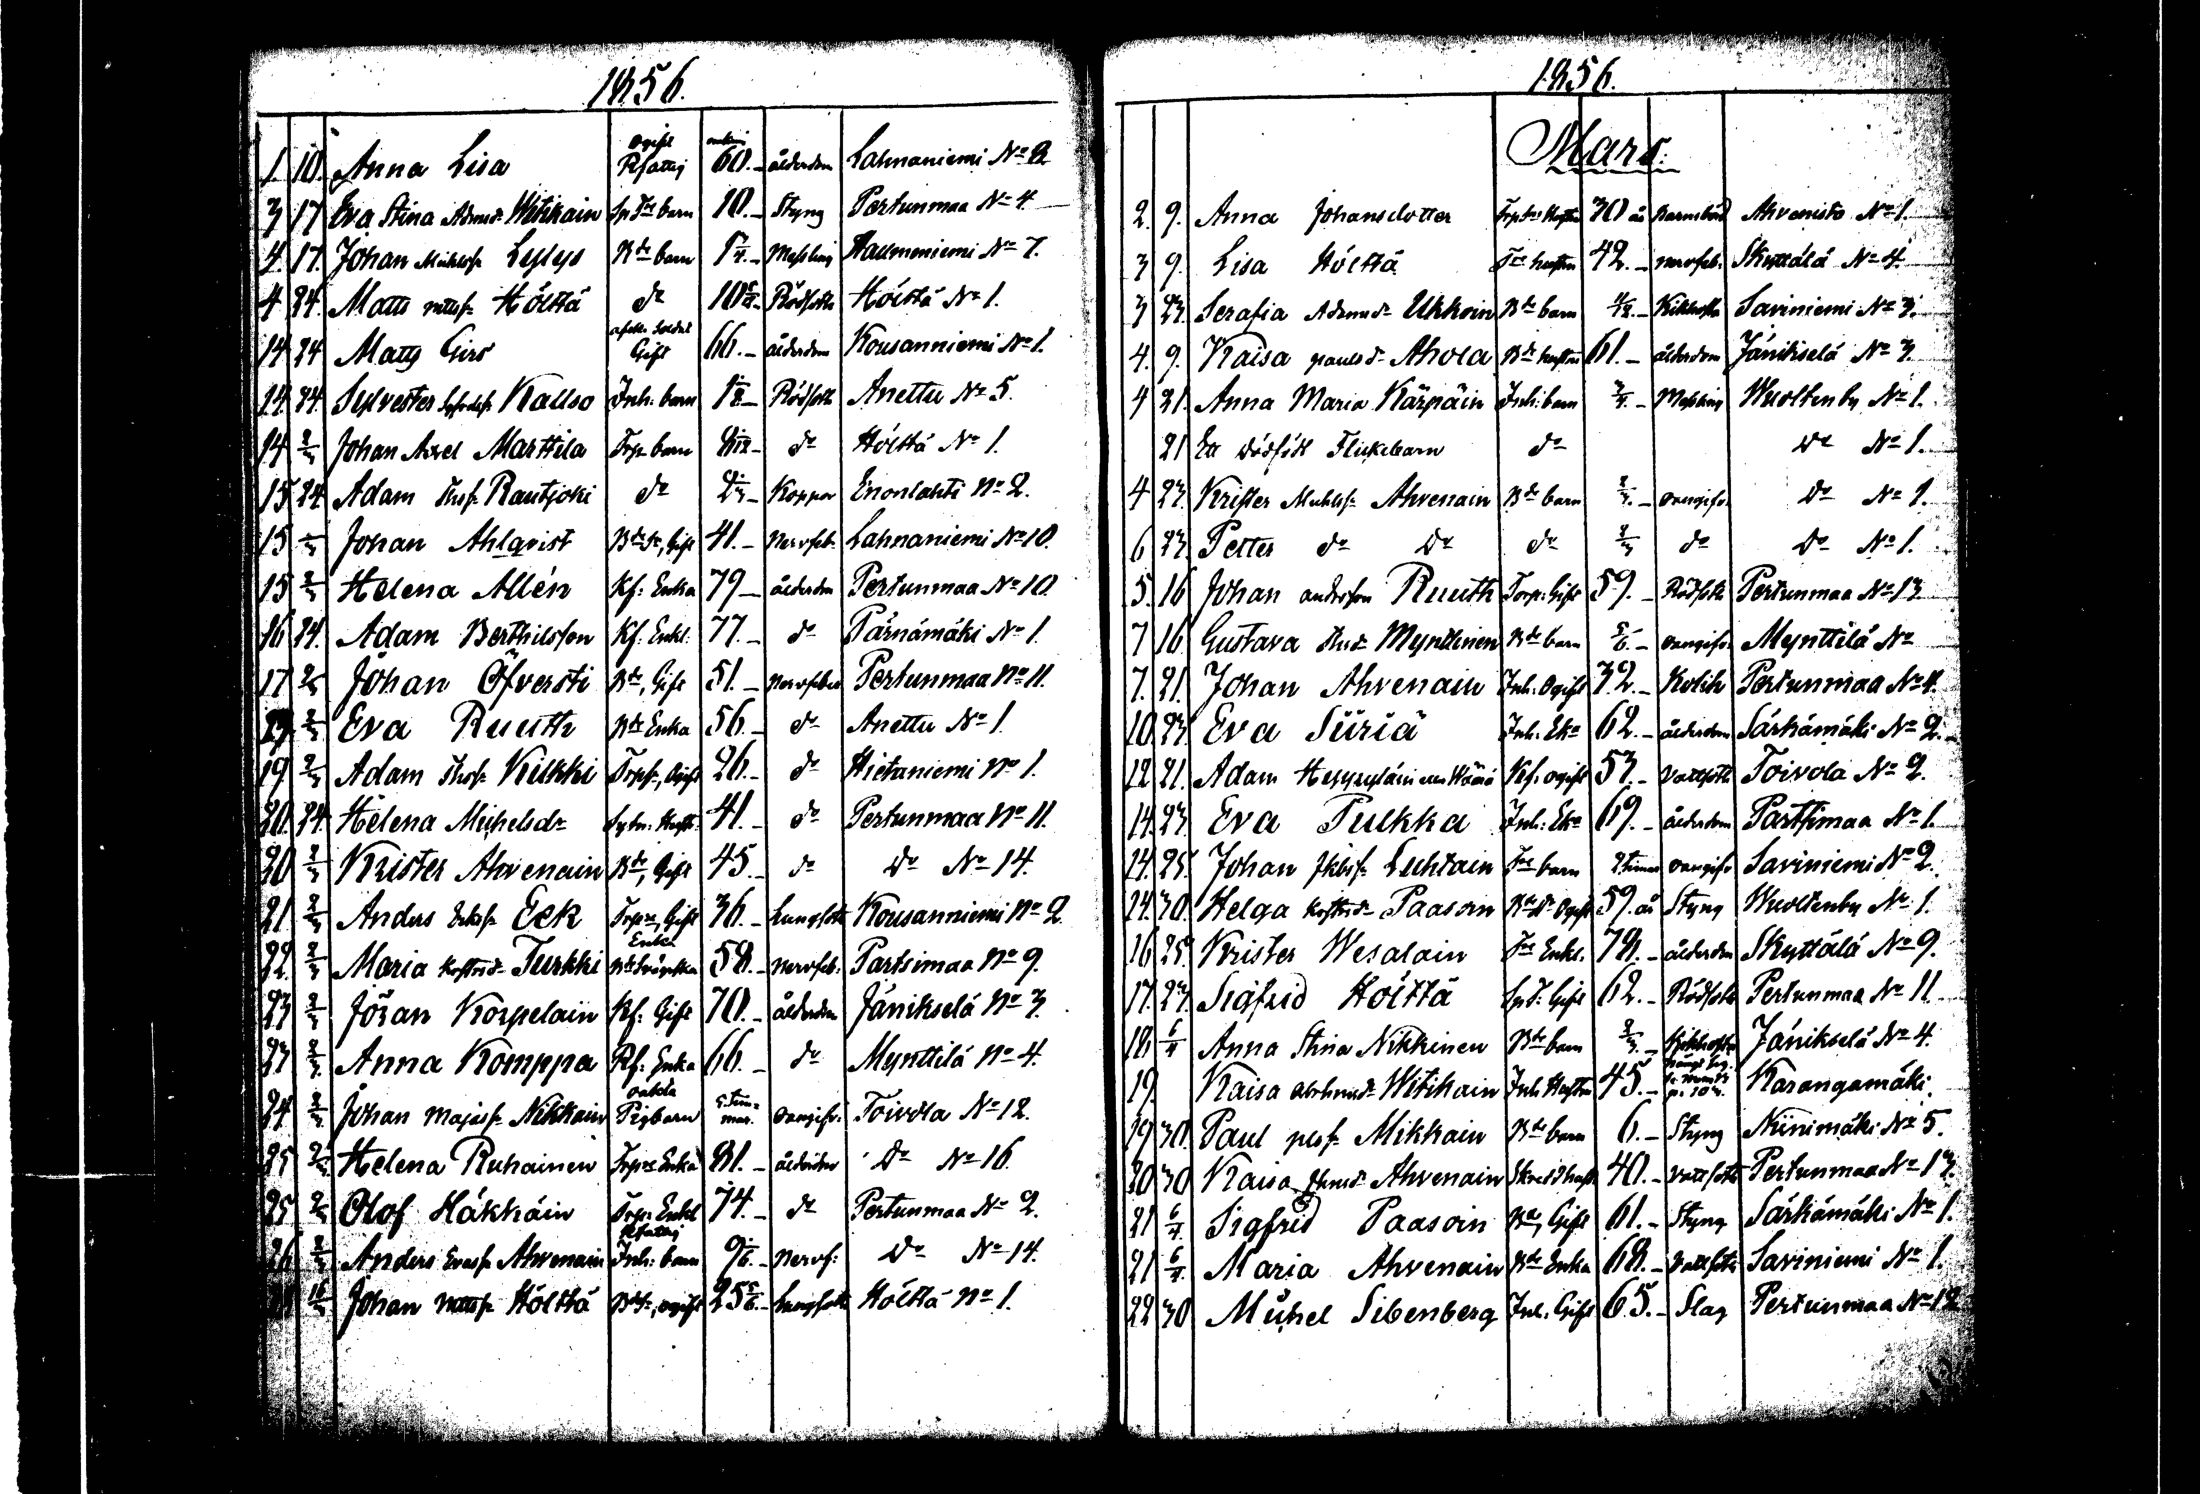 1856.
1. 10. Anna Lisa ogift Rfattig 60.- ålderdom Lahnaniemi No 2
3 17 Eva Stina Admsdr Witikain barn 10.- Styng Pertunmaa No 4.
4. 17. Johan Michelss. Lylys Bde barn 1 3/4.- Messling Hallmeniemi No 7.
4 24. Matts mttss. Hölttä do Rödsoth Hölttä No 1.
14 24 Matts Girs afsk. Soldat Gift 66.- ålderdom Kousanniemi No 1.
14 24. Sylvester Kallso Inh: barn Rödsoth Anettu No 5.
14 2/3 Johan Axel Marttila Torp. barn do Hölttä No 1.
15 24. Adam Thss. Rautjoki do Koppor Enonlahti No 2.
15 Johan Ahlqvist Gift 41.- Nervfeb. Lahnaniemi No 10.
15 2/3 Helena Allén Kf: Enka 79- ålderdom Pertunmaa No 10
16 24. Adam Berthilsson Kf: Enkl. 77.- do Pärnämäki No 1.
17 Johan Öfversti Bde, Gift 51.- Nervfeber Pertunmaa No 11.
2/3 Eva Ruuth Bde Enka 56.- do Anettu No 1.
19 2/3 Adam Thss. Kilkki Torps., Ogift 26.- do Hietaniemi No 1.
20. 24. Helena Michelsdr Sytn. Hustr. 41.- do Pertunmaa No 11.
20 2/3 Krister Ahvenain Bde, Gift 45.- do Do No 14.
21 2/3 Anders Eck Torpre, Gift 36.- Lungsoth Kousanniemi No 2.
22. 2/3 Maria Turkki Enka 58.- Nervfeb. Partsimaa No 9.
23 2/3 Jöran Korpelain Kf: Gift 70.- ålderdom Jänikselä No 3.
23 2/3 Anna Komppa Rf: Enka 66.- do Mynttilä No 4.
24 2/3 Johan Majass. Nikkain oäkta Pigbarn 5 timmar. oangifv. Toivola No 12.
25 Helena Ruhainen Torpre Enka 81.- ålderdom Do No 16.
25 Olof Häkkäin Torp. Enkl 74.- do Pertunmaa No 2.
26 2/3 Anders Evass. Ahvenain Rfattig Inh: barn Nervf: Do No 14.
16/3 Johan mttss. Hölttä ogift 25 5/6.- Lungsoth Hölttä No 1.
1856.
Mars.
2. 9. Anna Johansdotter Torprs Hustru 30 år Barnsbörd Ahvenisto No 1.
3 9. Lisa Hölttä hustru 42.- nervfeb. Skyttälä No 4.
3 23. Serafia Admsdr Ukkoin Bde barn Kikhosta Saviniemi No 3.
4. 9. Kaisa paulsdr Ahola Bde hustru 61.- ålderdom Jänikselä No 3.
4 21. Anna Maria Kärpäin Inh: barn 3/4.- Messling Wuoltenby No 1.
21 Ett dödfödt Flickebarn do Do No 1.
4 23. Krister Michlss. Ahvenain Bde barn oangifv. Do No 1.
6 23. Petter do Do do do Do No 1.
5. 16 Johan andersson Ruuth Torp: Gift 59.- Rödsoth Pertunmaa No 13
7 16. Gustava Mynttinen Bde barn 5/6.- oangifv. Mynttilä No
7. 21. Johan Ahvenain Inh. Ogift 32.- Kolik Pertunmaa No 4.
10. 23. Eva Siiriä Inh. Eka 62.- ålderdom Särkämäki No 2.
12 21. Adam Kf: ogift 53.- Vattsoth Toivola No 2.
14. 23 Eva Pulkka Inh: Eka 69.- ålderdom Partsimaa No 1.
14. 25. Johan Jkbss. Luhtain barn 2 timar oangifv Saviniemi No 2.
14. 30. Helga Paasoin Ogift 59. år Styng Wuoltenby No 1.
16 25. Krister Wesalain Enkl. 78.- ålderdom Skyttälä No 9.
17. 23. Sigfrid Höltta Gift 62.- Rödsoth Pertunmaa No 11.
18 6/4 Anna Stina Nikkinen Bde barn Kikhosta Jänikselä No 4.
19. Kaisa Witikain Inh. Hustru 45.- Karangamäki.
19 30. Paul plss. Mikkain Bde barn 6.- Styng Niinimäki No 5.
20 30 Kaisa Ahvenain 40.- Vattsoth Pertunmaa No 13.
21 6/4 Sigfrid Paasoin Gift 61.- Styng Särkämäki No 1.
21 6/4. Maria Ahvenain Bde Enka 68.- Vattsoth Saviniemi No 1.
22 30 Michel Sibenberg Inh. Gift 65.- Slag Pertunmaa No 12